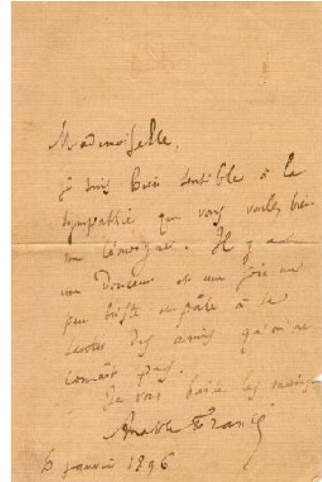 Mademoiselle,
je suis bien sensible à la
sympathie que vous voulez bien
me témoigner. Il y a
une douceur et une joie un
peu triste et pâle à se
des amis qu'on ne
connaît pas.
Je vous baise les mains
Anatole France
6 janvier 1896